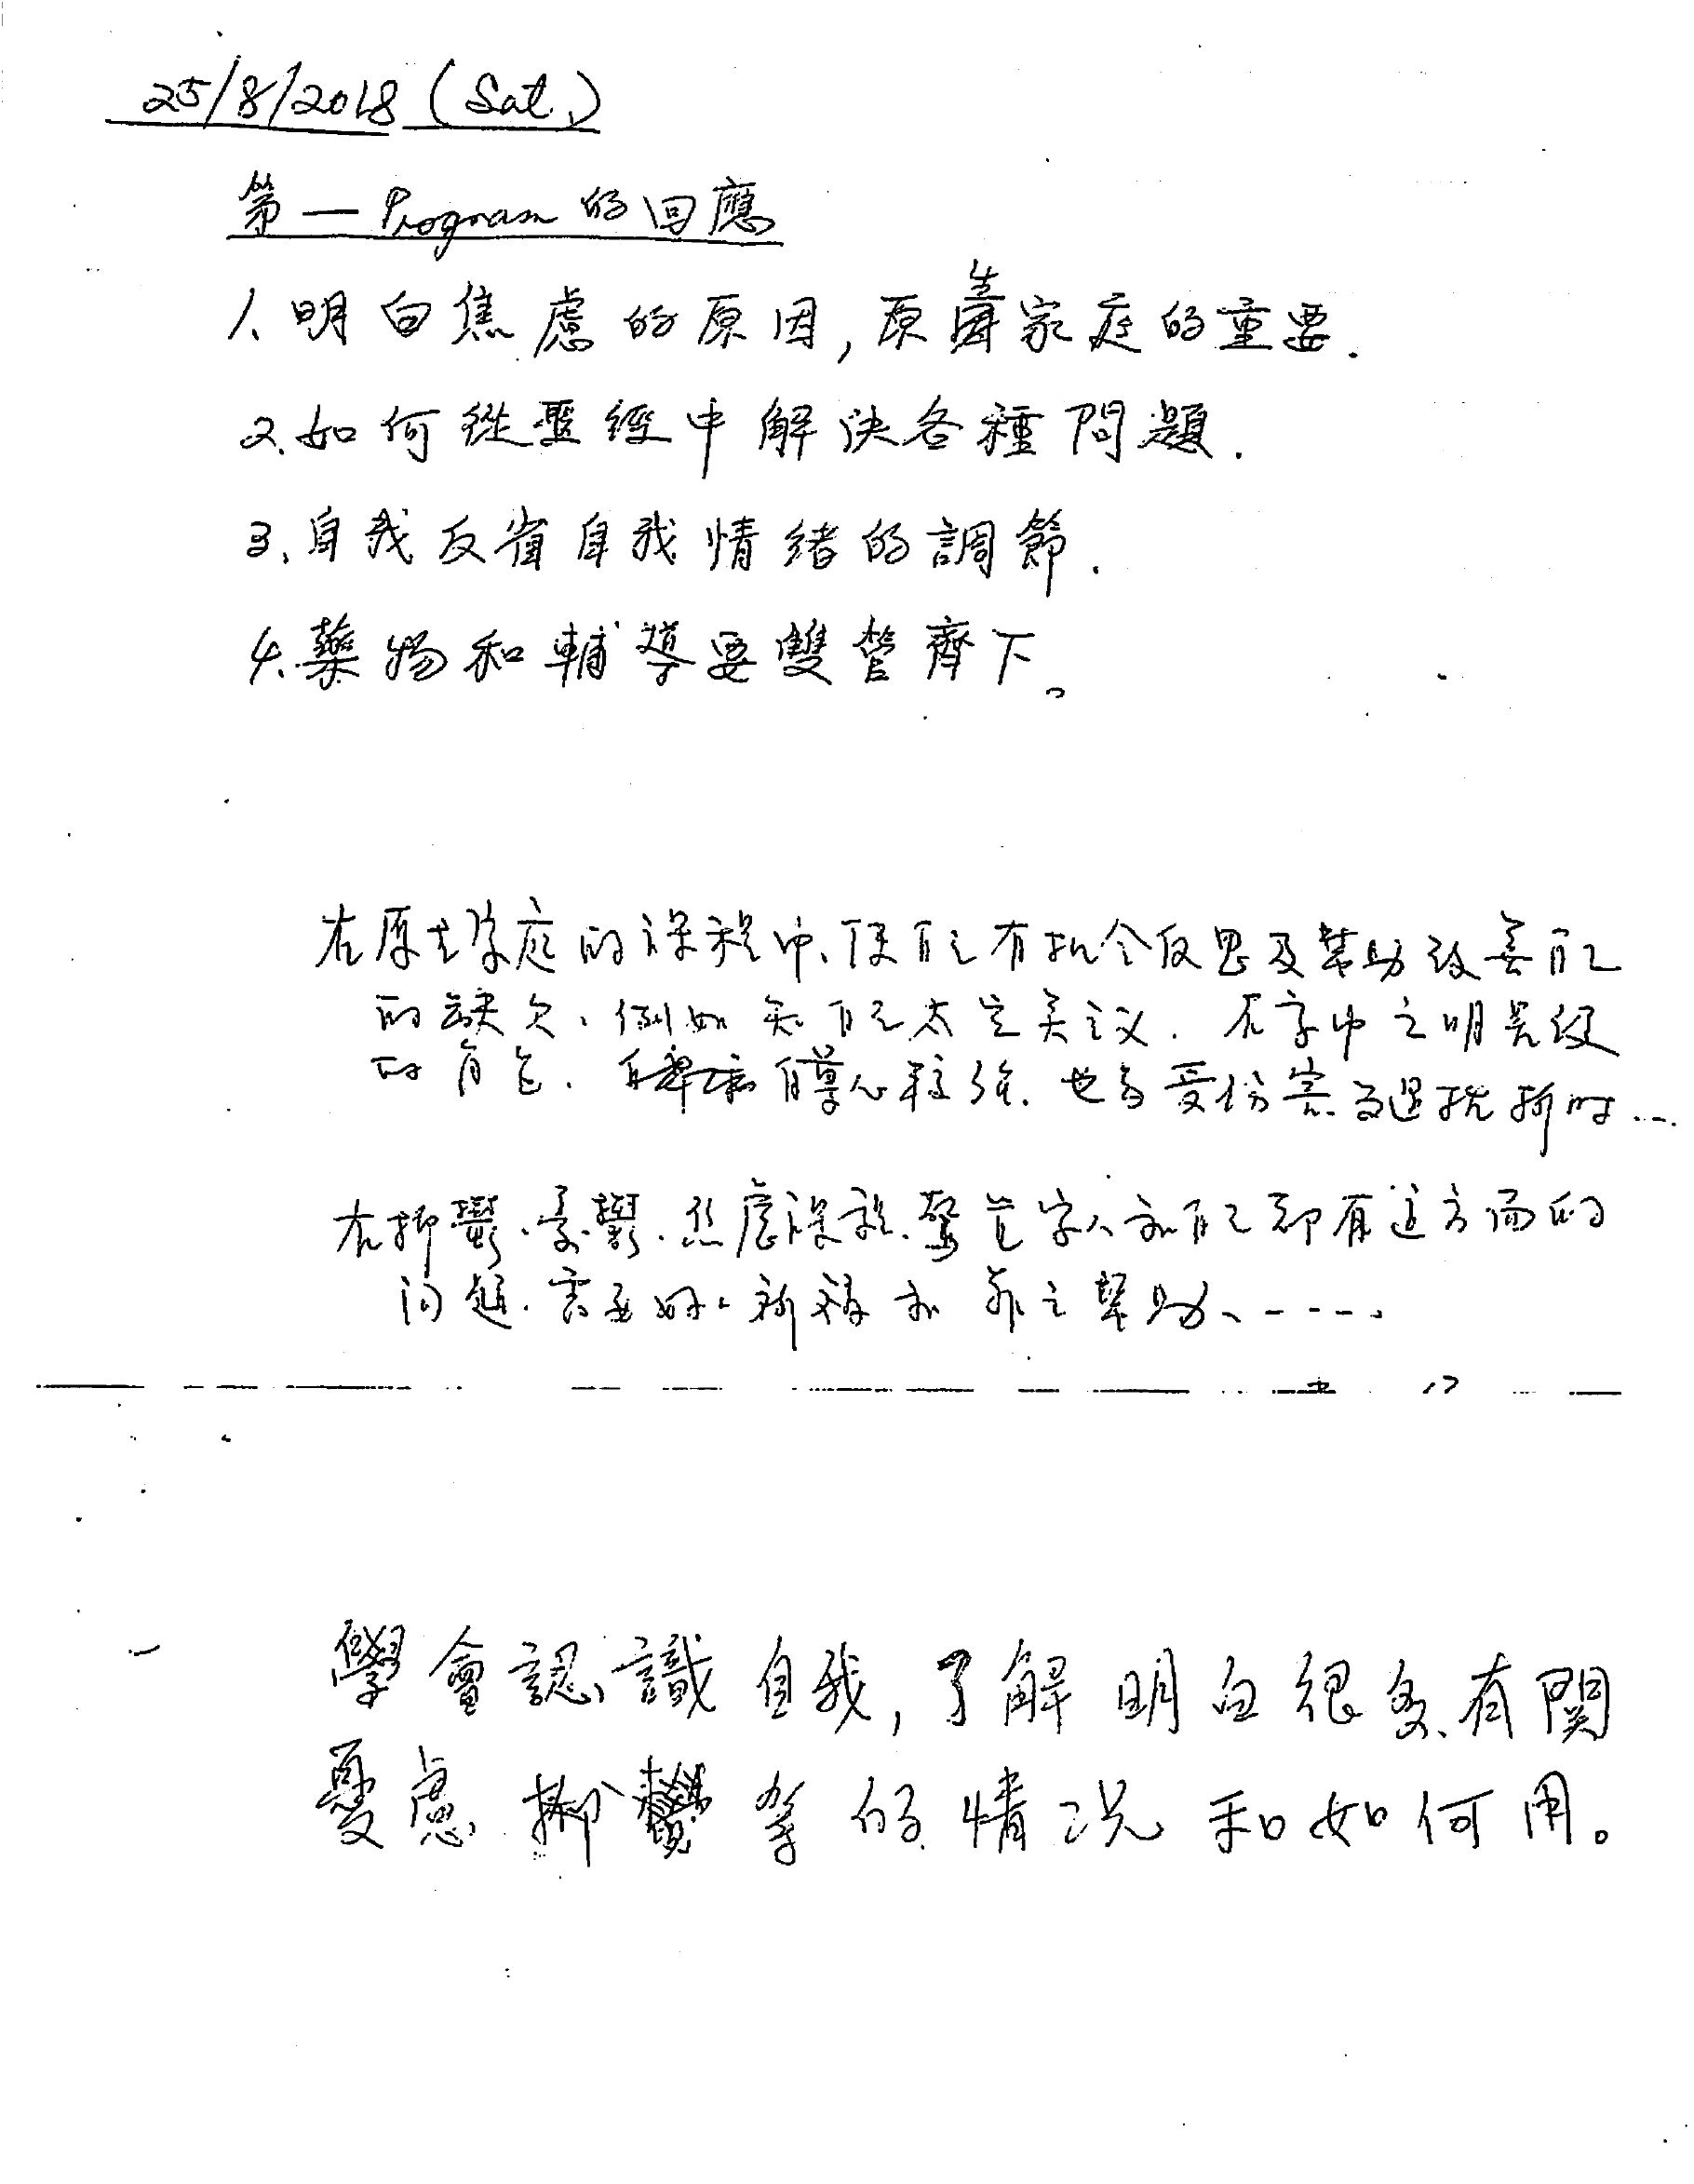 25/8/2018 (Sat.)
第一 Program 的回應
1. 明白焦慮的原因, 原生家庭的重要.
2. 如何從聖經中解決各種問題.
3. 自我反省自我情緒的調節.
4. 藥物和輔導要雙管齊下。
在原生家庭的課程中、使自己有机会反思及幫助改善自己
的缺欠、例如知自己太完美主义. 在家中之明星仔
的角色. 自尊心較強. 也易受伤害. 遇挫折时...
在抑鬱. 焦慮課程. 家人和自己都有這方面的
问題. 需要好好祈禱和靠主幫助、----.
學會認識自我, 了解明白很多有關
憂慮抑鬱等的情況和如何用。